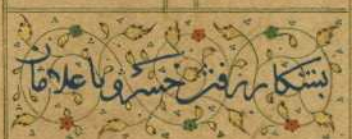 بشکار رفتن خسرو با غلامان